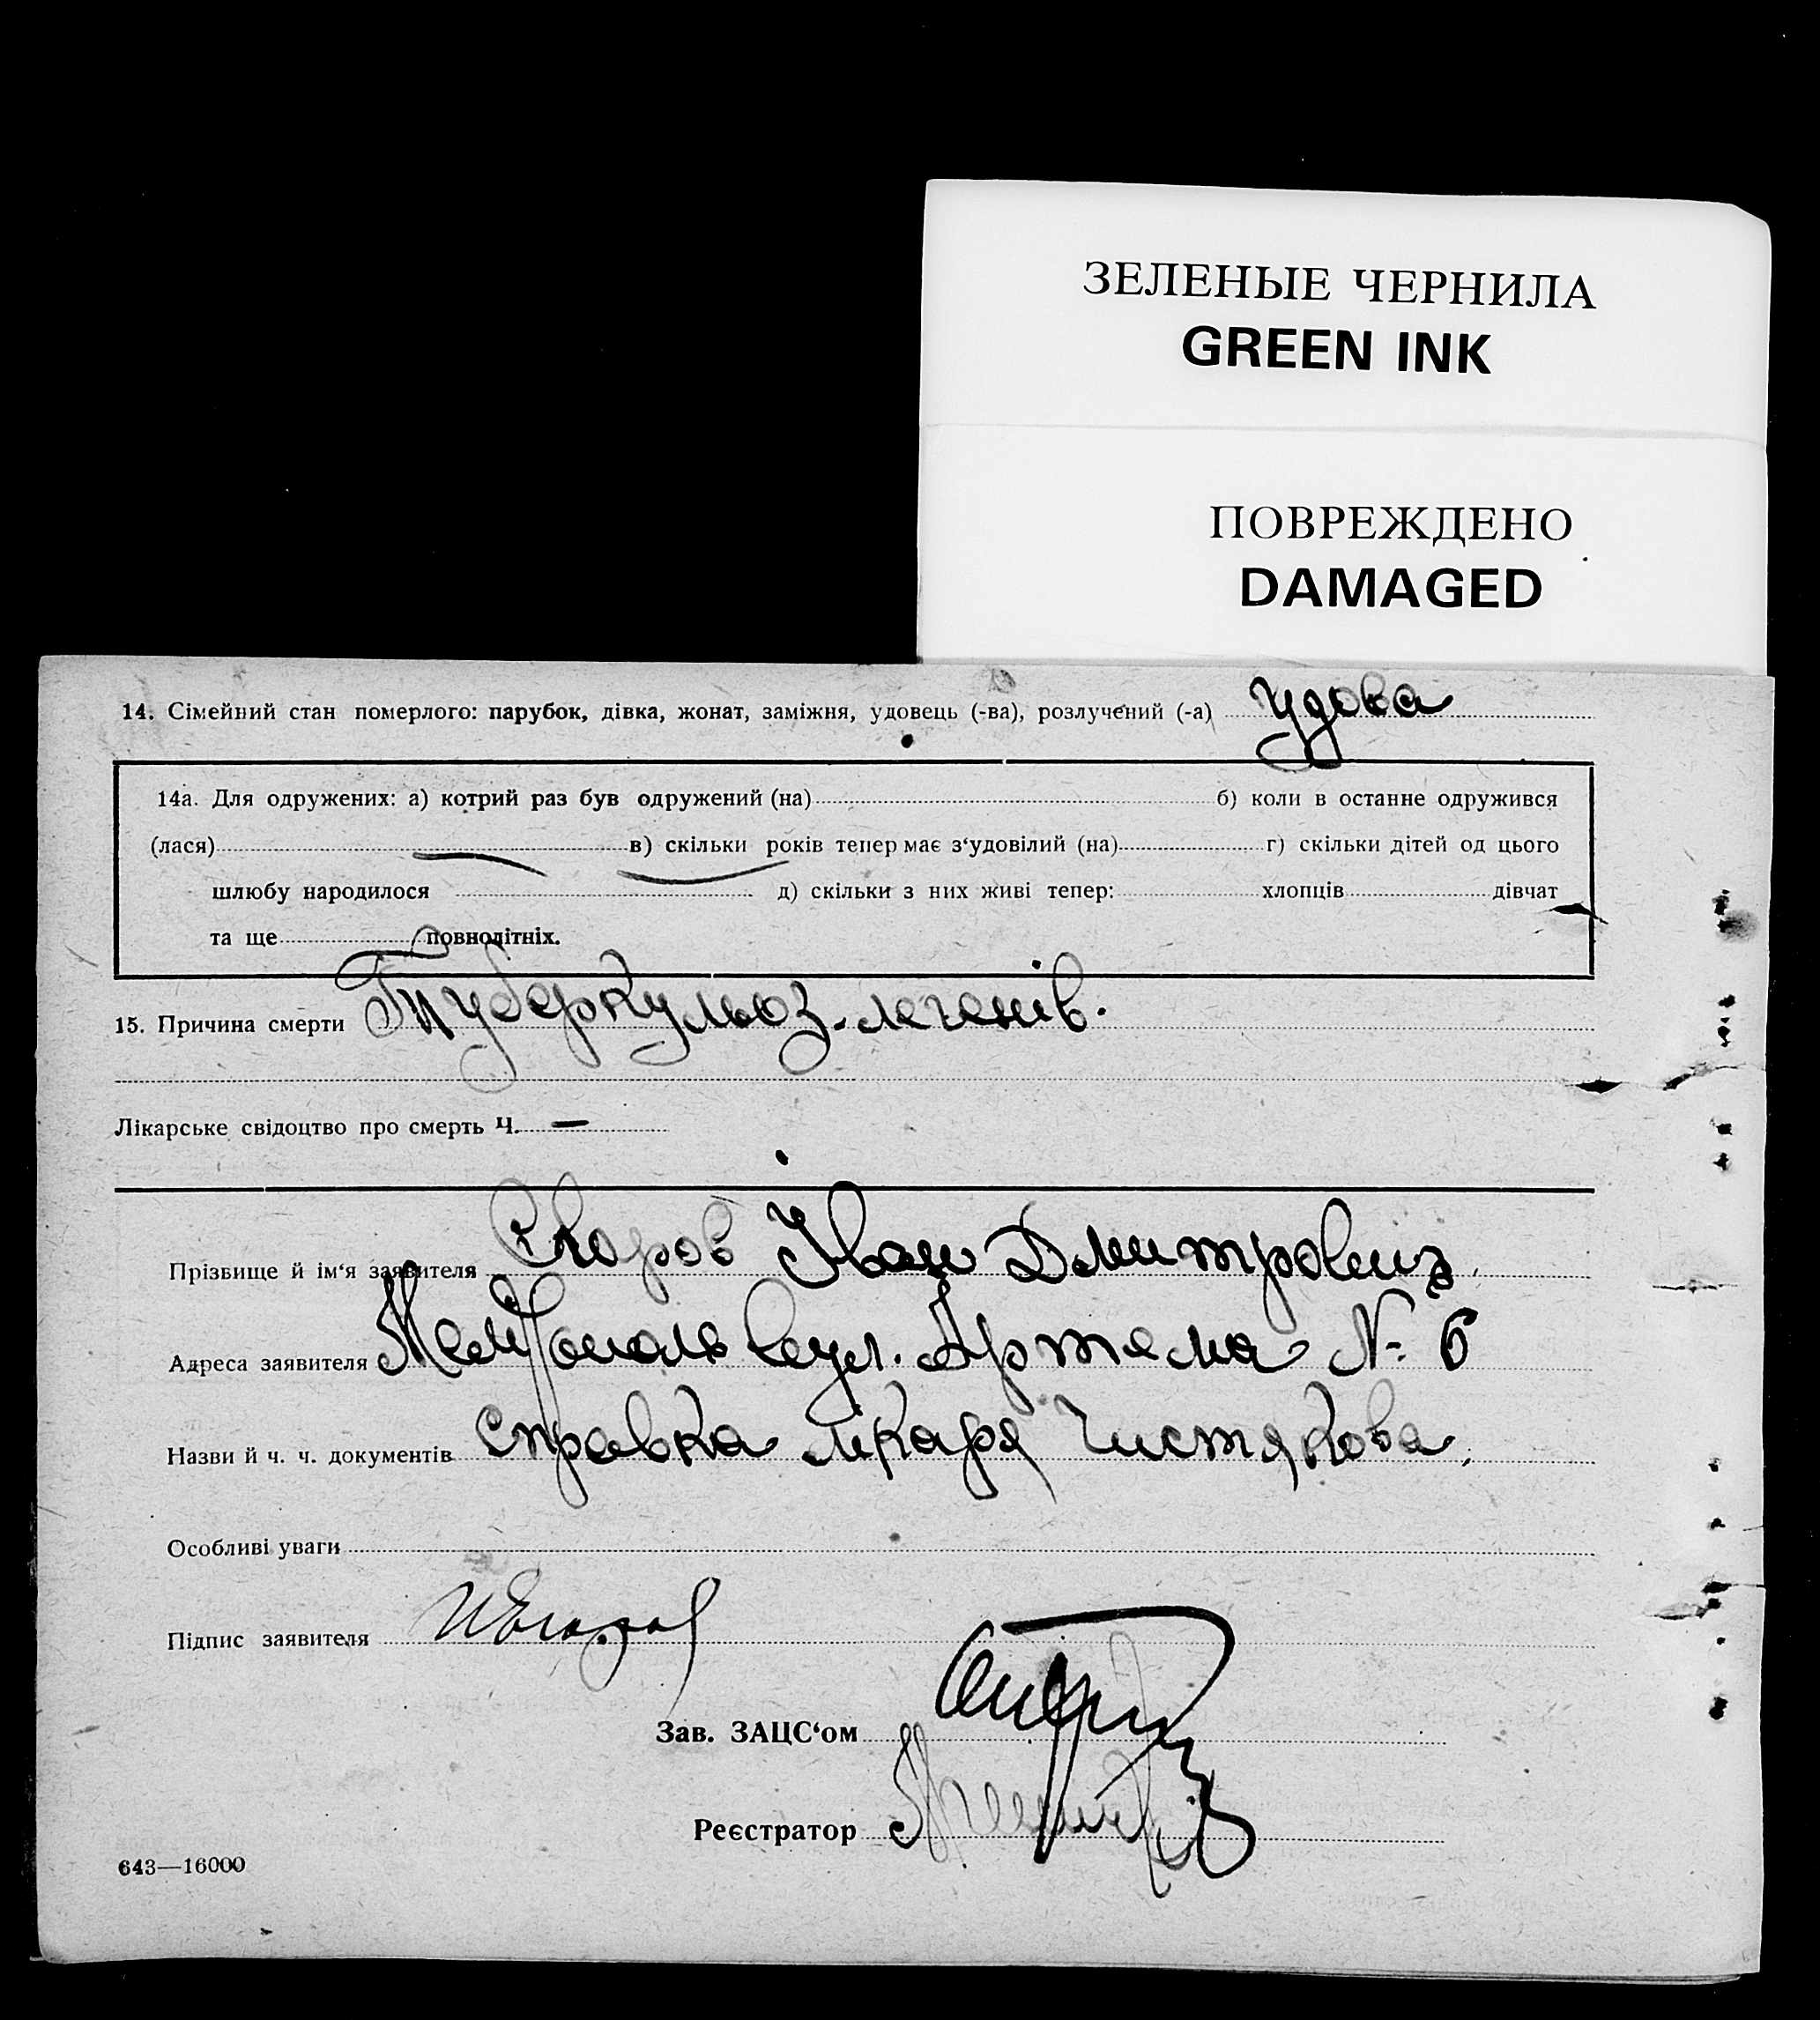 ЗЕЛЕНЫЕ ЧЕРНИЛА
GREEN INK
ПОВРЕЖДЕНО
DAMAGED
14. Сімейний стан померлого: парубок, дівка, жонат, заміжня, удовець (-ва), розлучений (-а) удова
14а. Для одружених: а) котрий раз був одружений (на) б) коли в останне одружився
(лася) в) скільки років тепер має з‘удовілий (на) г) скільки дітей од цього
шлюбу народилося д) скільки з них живі тепер: хлопців дівчат
та ще повнолітніх.
15. Причина смерти Туберкульоз легенів.
Лікарське свідоцтво про смерть Ч. —
Прізвище й ім‘я заявителя Іван Дмитрович
Адреса заявителя вул. Артема № 6
Назви й ч. ч. документів справка лікаря Чистякова
Особливі уваги
Підпис заявителя
Зав. ЗАЦС‘ом
Реєстратор
643—16000